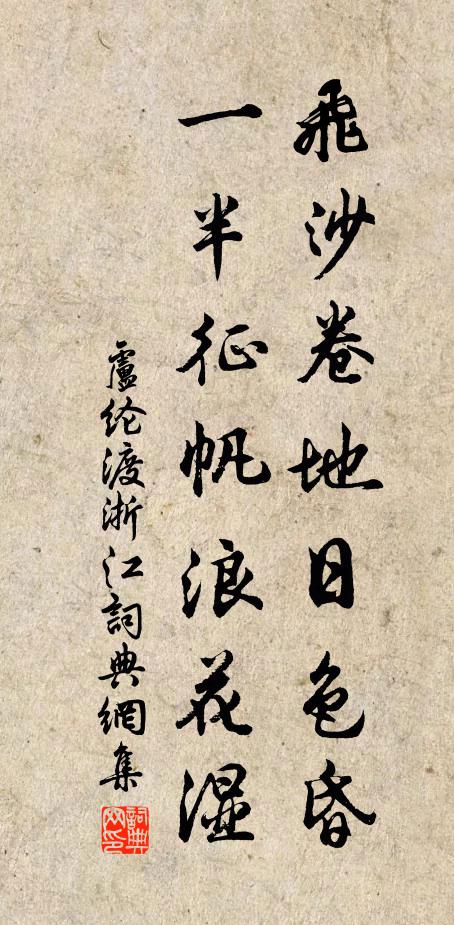 飛沙卷地日色昏
一半征帆浪花濕
盧纶渡浙江詞典網集
詞典網印